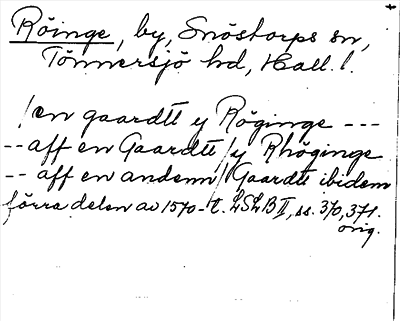 Röinge, by, Snöstorps sn,
Tönnersjö hd, Hall. l.
/en gaardtt y Röginge ---
-- aff en Gaardtt/y Rhöginge
-- aff en andenn/Gaardtt ibidem
förra delen av 1570-t. LSLB II, ss. 370, 371.
orig.